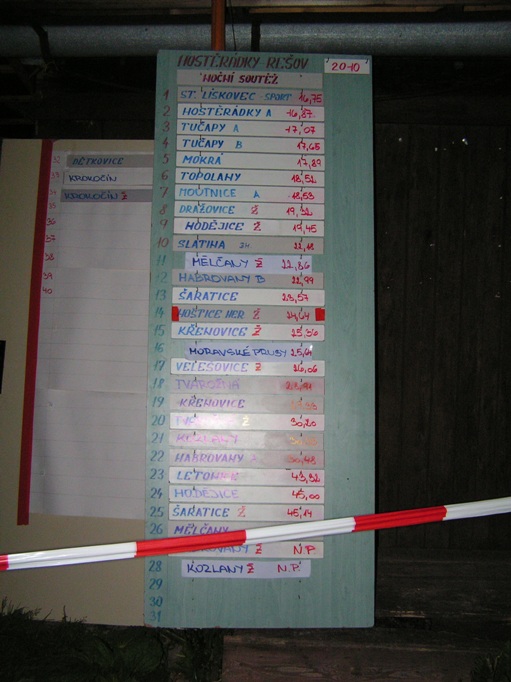 HOSTĚRÁDKY REŠOV 2010
NOČNÍ SOUTĚŽ
1 ST. LÍSKOVEC - SPORT 16,75
2 HOSTĚRÁDKY A 16,87
3 TUČAPY A 17,07
4 TUČAPY B 17,65
5 MOKRÁ 17,89
6 TOPOLANY 18,52
7 MOUTNICE A 18,53
8 DRAŽOVICE Ž 19,32
9 HODĚJICE Ž 19,45
10 SLATINA 21,18
11 MĚLČANY Ž 22,86
12 HABROVANY B 22,99
13 ŠARATICE 23,57
14 HOŠTICE HER Ž 24,64
15 KŘENOVICE Ž 25,36
16 MORAVSKÉ PRUSY 25,61
17 VELEŠOVICE Ž 26,06
18 TVAROŽNÁ
19 KŘENOVICE
20 Ž 30,20
21
22 HABROVANY 30,48
23 LETONICE 43,32
24 HODĚJICE 45,00
25 ŠARATICE Ž 45,14
26 MĚLČANY
Ž N.P.
28 KOZLANY Ž N.P.
29
30
31
32 DĚTKOVICE
33 KRÁKOČÍN
34 KRÁKOČÍN Ž
35
36
37
38
39
40